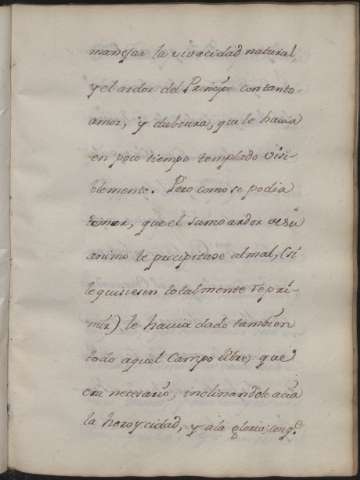 manejar la vivacidad natural
y el ardor del Principe con tanto
amor, y dulzura, que le havia
en poco tiempo templado visi-
blemente. Pero como se podia
temer, que el sumo ardor de su
animo le precipitase al mal, (si
le quisiesen totalmente repri-
mir) le havia dado tambien
todo aquel Campo libre, que
era necesario, inclinandole acia
la heroycidad, y a la gloria: con q.e